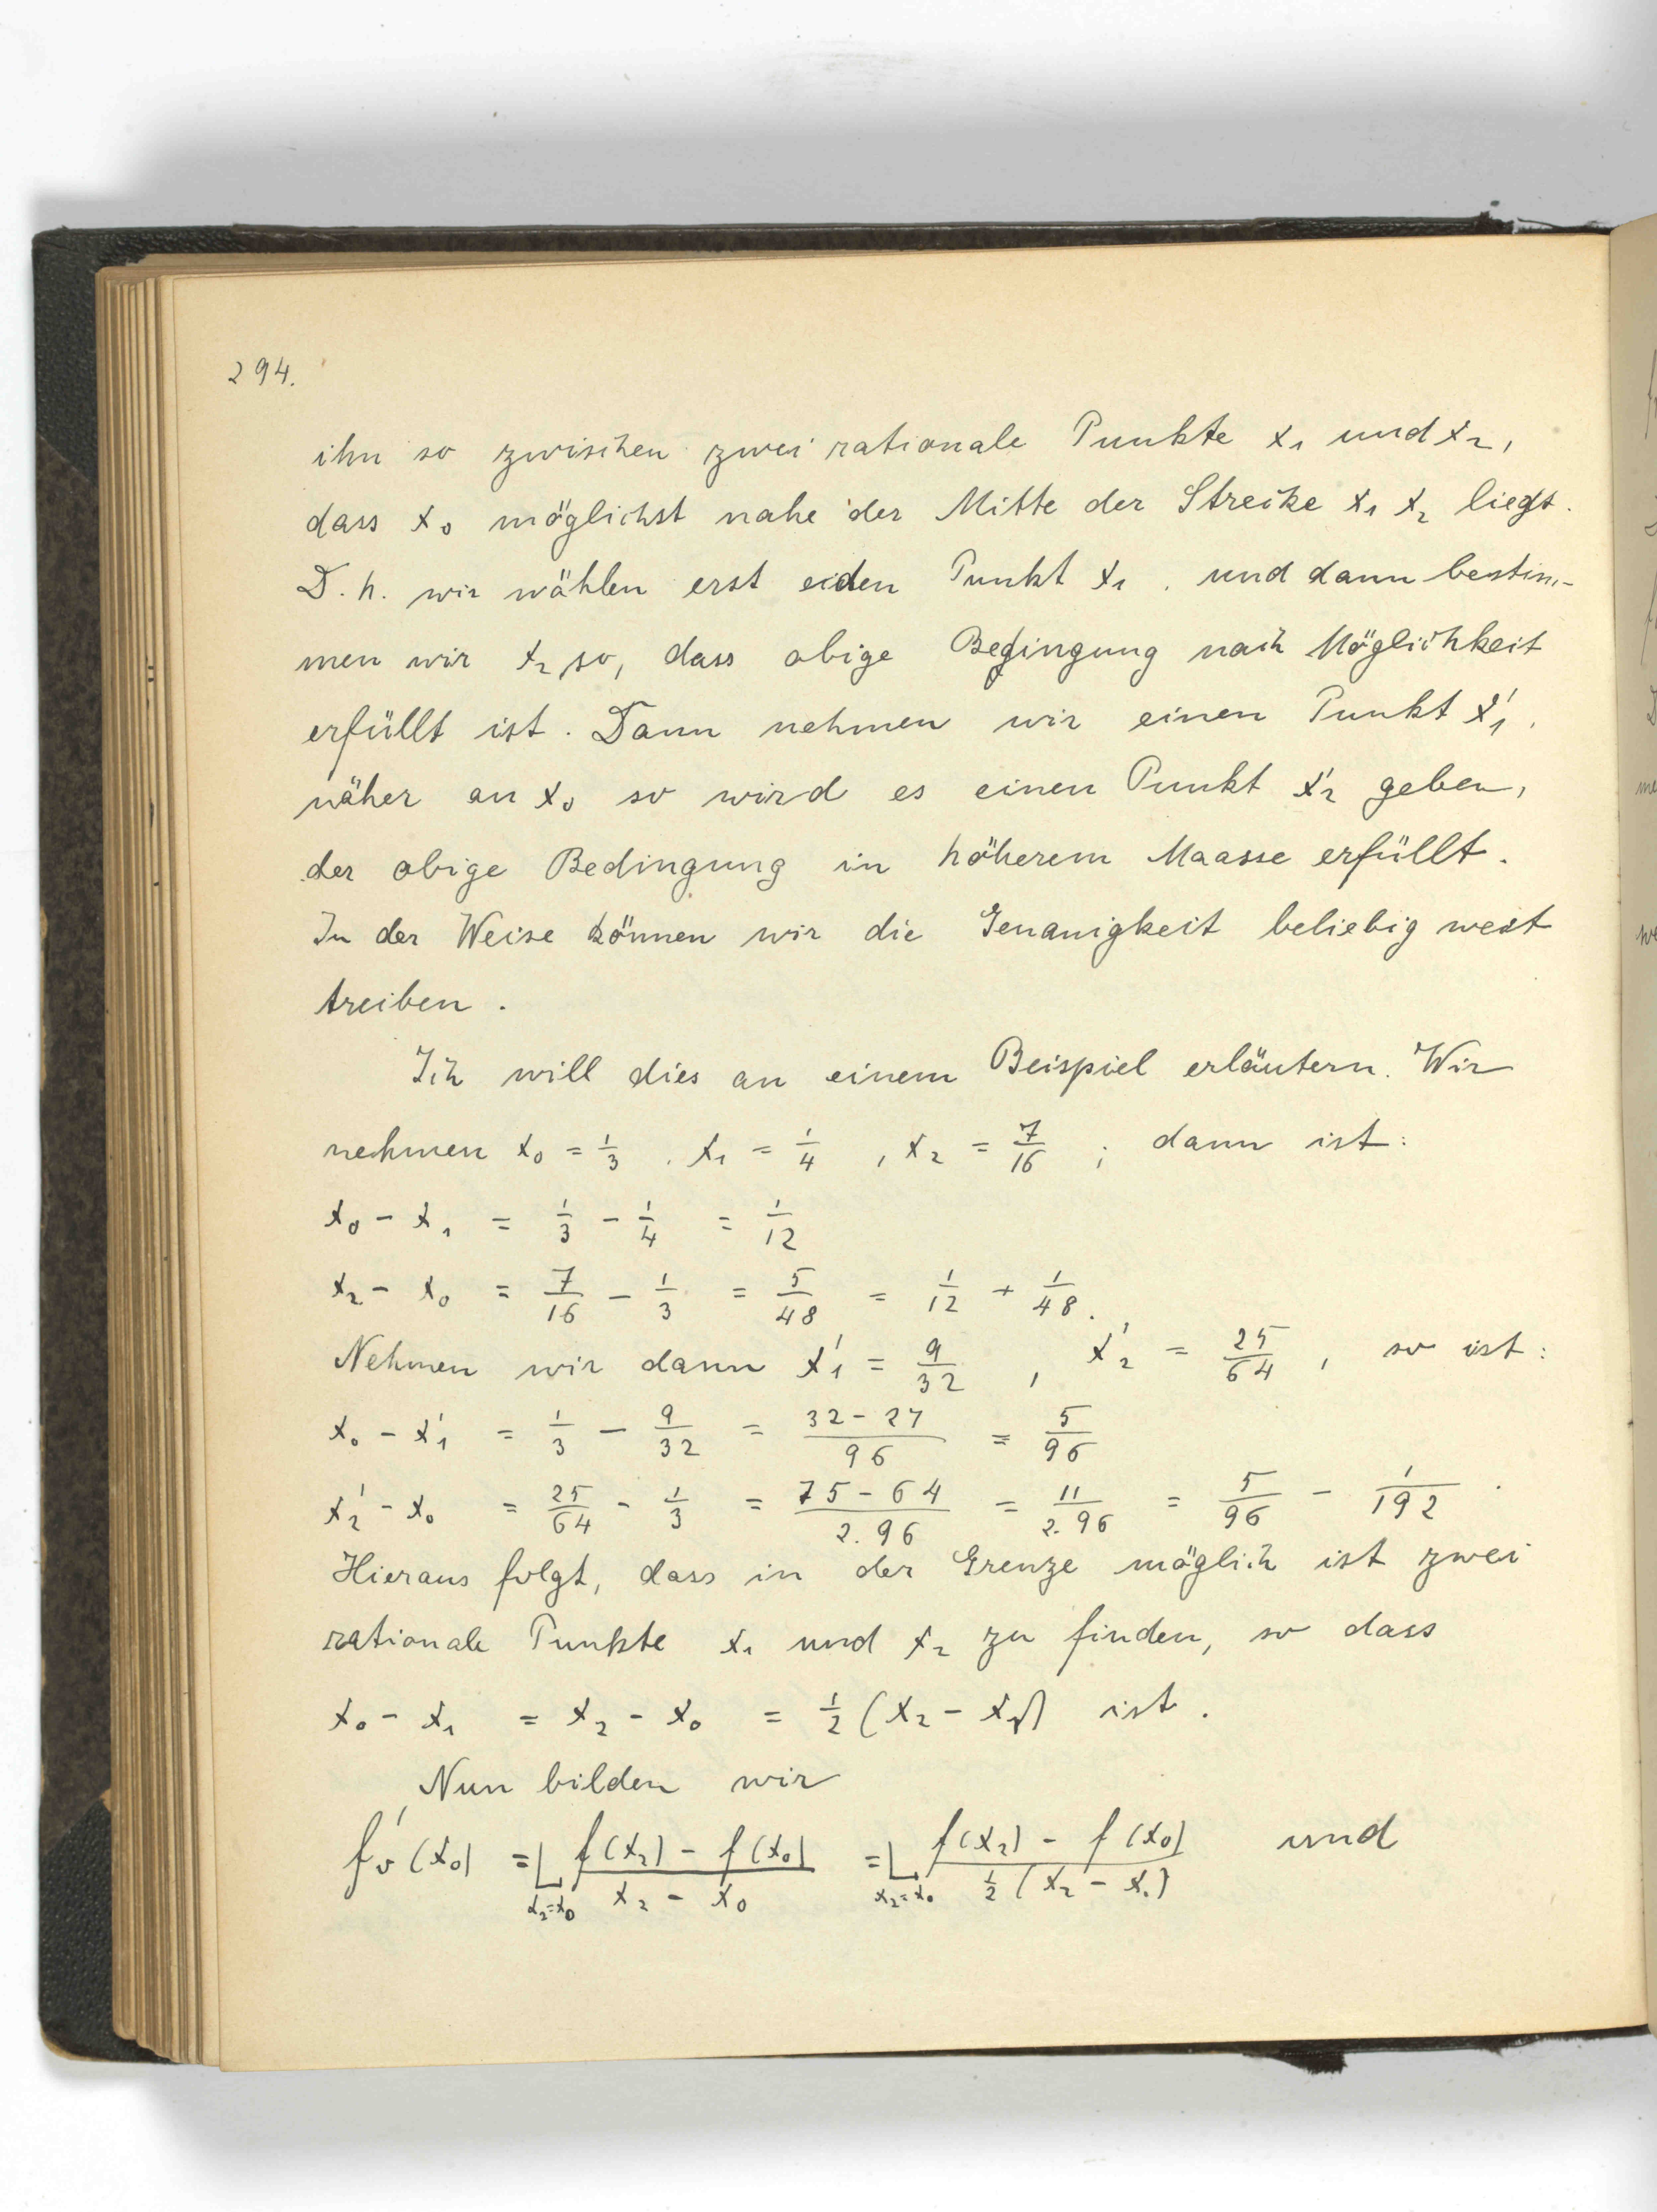 294.
ihn so zwischen zwei rationale Punkte x₁ und x₂,
dass x₀ möglichst nahe der Mitte der Strecke x₁ x₂ liegt.
D. h. wir wählen erst einen Punkt x₁, und dann bestim-
men wir x₂ so, dass obige Bedingung nach Möglichkeit
erfüllt ist. Dann nehmen wir einen Punkt x₁′,
näher an x₀ so wird es einen Punkt x₂′ geben,
der obige Bedingung in höherem Maasse erfüllt.
In der Weise können wir die Genauigkeit beliebig weit
treiben.
Ich will dies an einem Beispiel erläutern. Wir
nehmen x₀ = 1/3, x₁ = 1/4, x₂ = 7/16; dann ist:
x₀ - x₁ = 1/3 - 1/4 = 1/12
x₂ - x₀ = 7/16 - 1/3 = 5/48 = 1/12 + 1/48.
Nehmen wir dann x₁′ = 9/32, x₂′ = 25/64, so ist:
x₀ - x₁′ = 1/3 - 9/32 = (32-27)/96 = 5/96
x₂′ - x₀ = 25/64 - 1/3 = (75-64)/(2.96) = 11/(2.96) = 5/96 - 1/192.
Hieraus folgt, dass in der Grenze möglich ist zwei
rationale Punkte x₁ und x₂ zu finden, so dass
x₀ - x₁ = x₂ - x₀ = 1/2 (x₂ - x₁) ist.
Nun bilden wir
f′ᵥ(x₀) = L_{x₂=x₀} (f(x₂) - f(x₀))/(x₂ - x₀) = L_{x₂=x₀} (f(x₂) - f(x₀))/(1/2 (x₂ - x₁)) und